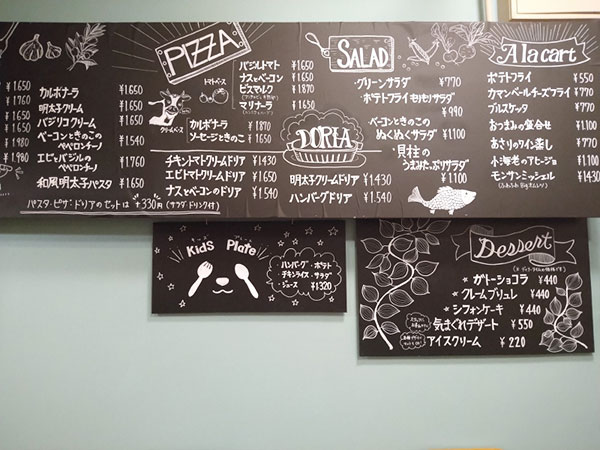 ¥1650
¥1650
¥1650
¥1980
¥1980
カルボナーラ ¥1650
明太クリーム ¥1650
バジリコクリーム ¥1650
ベーコンときのこの
ペペロンチーノ ¥1.540
エビとバジルの
ペペロンチーノ ¥1.760
和風明太子パスタ ¥1650
パスタ・ピザ・ドリアのセットは +330円 (サラダ ドリンク付)
PIZZA
クリームベース
カルボナーラ ¥1.870
ソーセージときのこ ¥1650
トマトベース
バジルトマト ¥1650
ナスとベーコン ¥1650
ビスマルク ¥1870
マリナーラ ¥1650
DORIA
チキントマトクリームドリア ¥1430
エビトマトクリームドリア ¥1650
ナスとベーコンのドリア ¥1.540
明太子クリームドリア ¥1430
ハンバーグドリア ¥1.540
SALAD
グリーンサラダ ¥770
ポテトフライもりもりサラダ
¥990
ベーコンときのこの
ぬくぬくサラダ ¥1.100
貝柱の
うまみたっぷりサラダ
¥1100
A la cart
ポテトフライ ¥550
カマンベールチーズフライ ¥770
ブルスケッタ ¥770
おつまみの盛合せ ¥1.100
あさりのワイン蒸し ¥770
小海老のアヒージョ ¥1.100
モンサンミッシェル ¥1430
(ふわふわ Bigオムレツ)
Kids Plate
ハンバーグ・ポテト
チキンライス・サラダ
ジュース ¥1320
Dessert
ガトーショコラ ¥440
クレームブリュレ ¥440
シフォンケーキ ¥440
気まぐれデザート ¥550
アイスクリーム ¥220